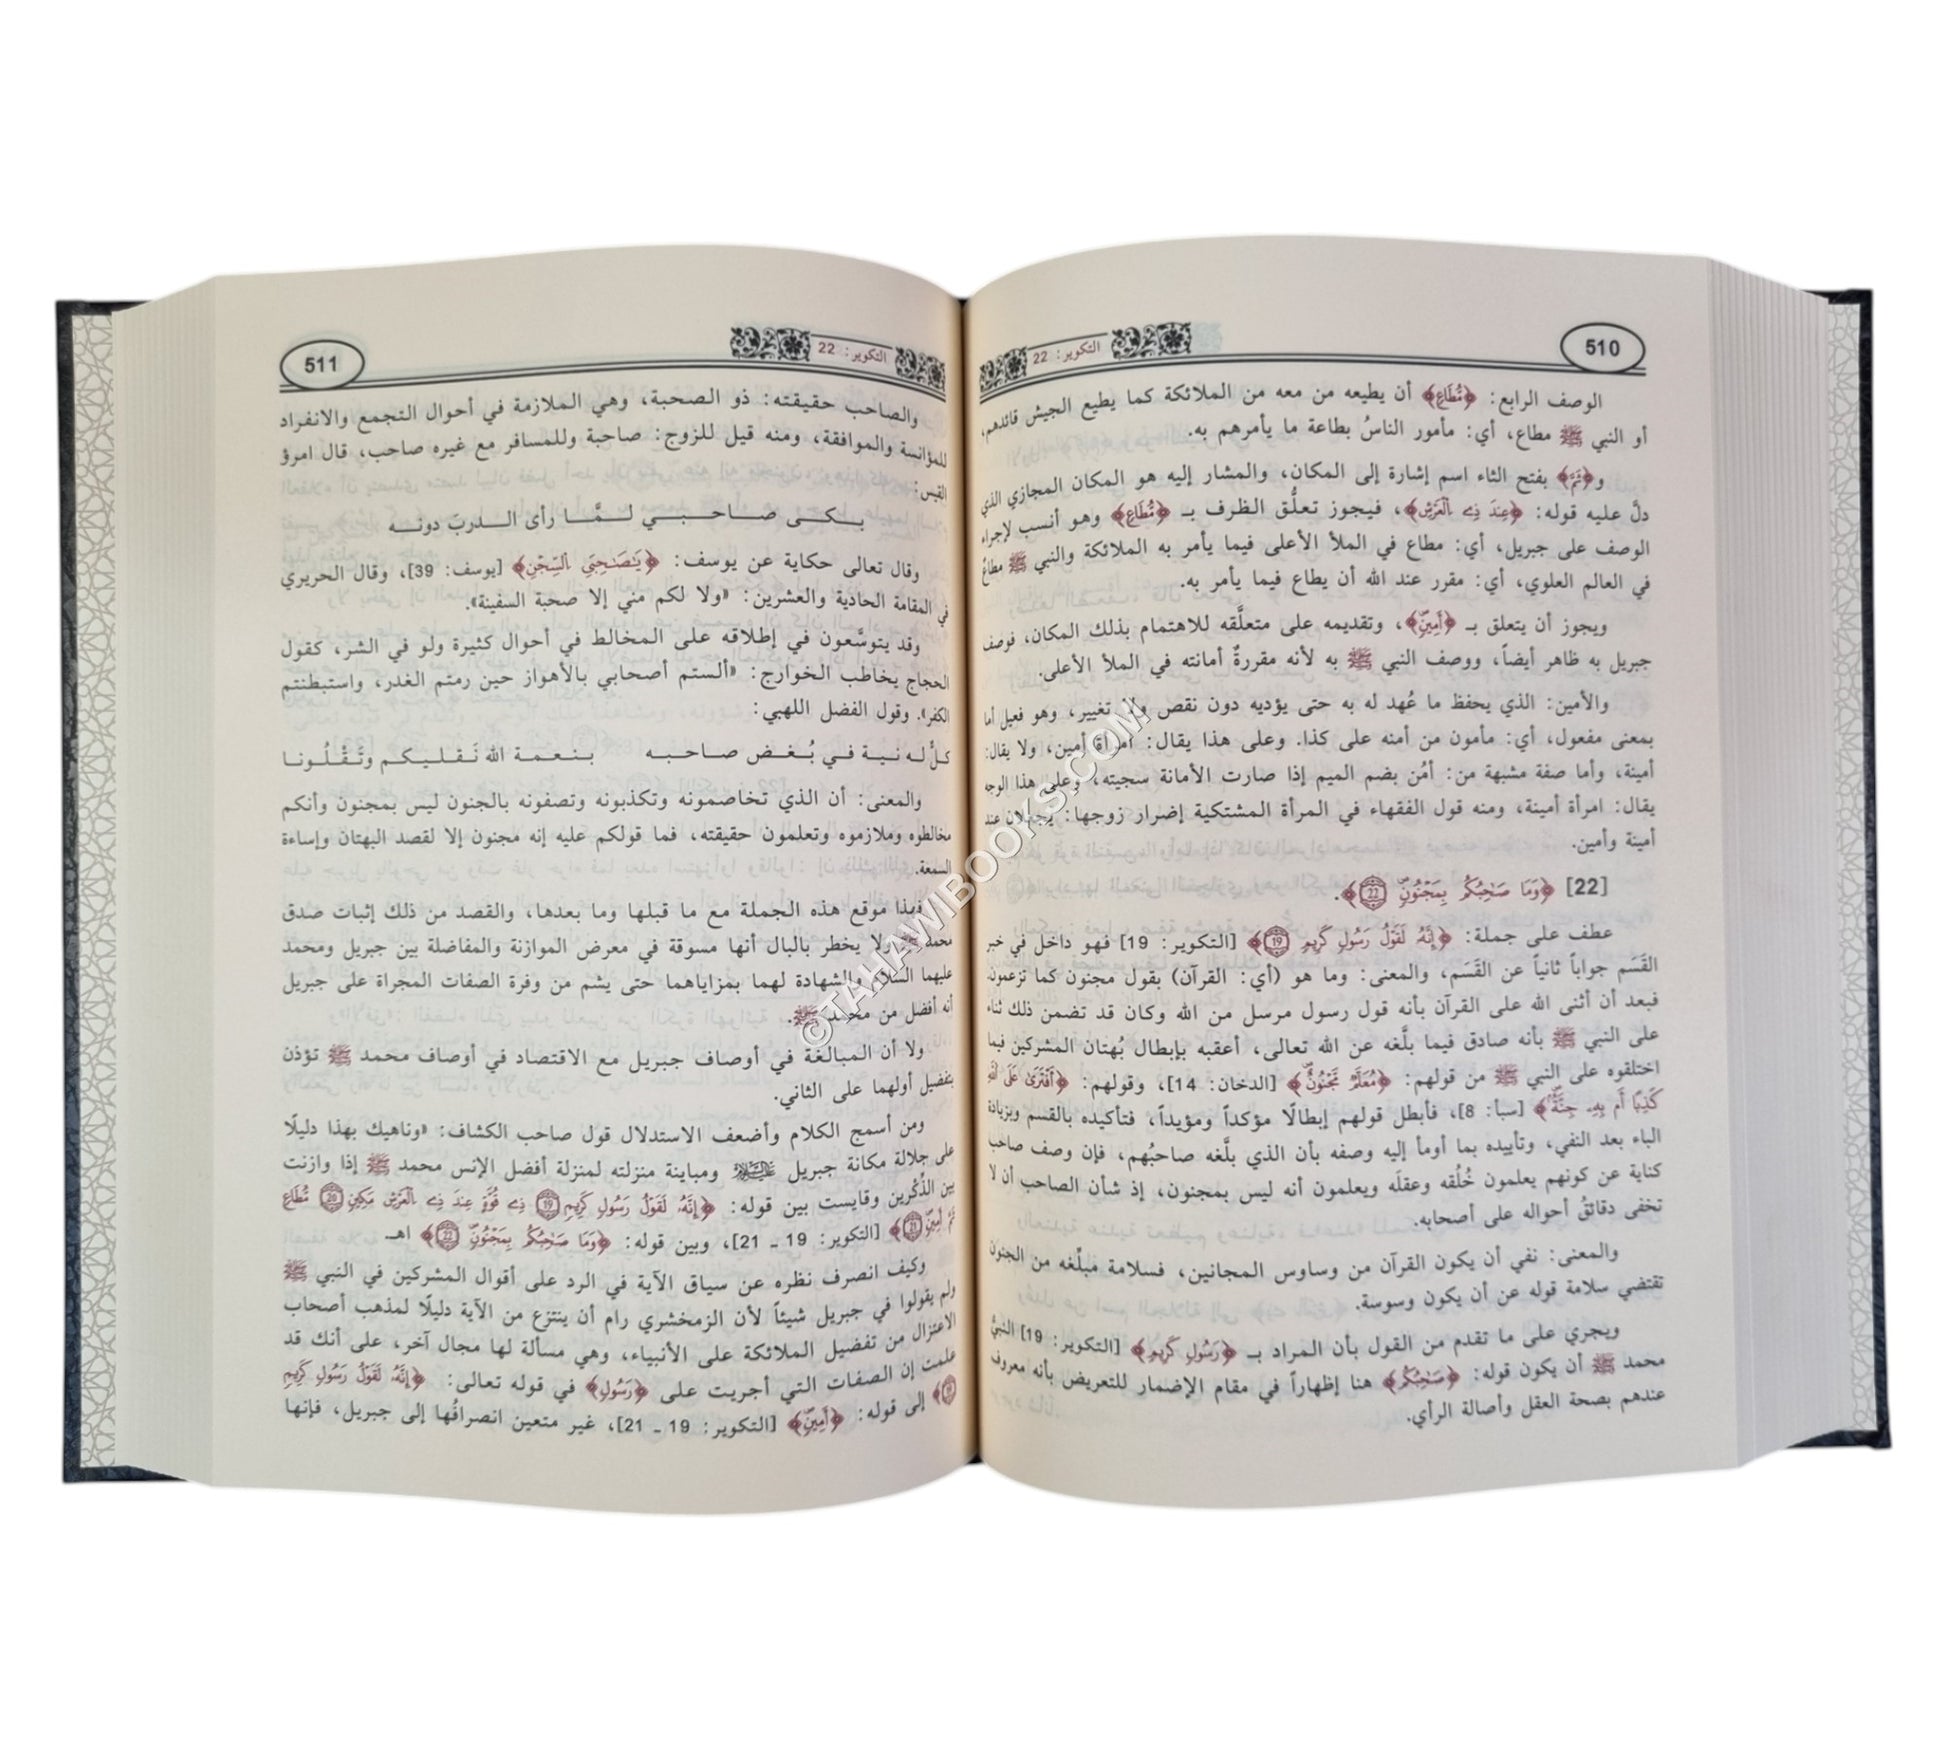 510
التكوير: 22
الوصف الرابع: ﴿مُّطَاعٍ﴾ أن يطيعه من معه من الملائكة كما يطيع الجيش قائدهم،
أو النبي ﷺ مطاع، أي: مأمور الناسُ بطاعة ما يأمرهم به.
و﴿ثَمَّ﴾ بفتح الثاء اسم إشارة إلى المكان، والمشار إليه هو المكان المجازي الذي
دلَّ عليه قوله: ﴿عِندَ ذِے اِ۬لْعَرْشِ﴾، فيجوز تعلُّق الظرف بـ ﴿مُّطَاعٍ﴾ وهو أنسب لإجراء
الوصف على جبريل، أي: مطاع في الملأ الأعلى فيما يأمر به الملائكة والنبي ﷺ مطاعٌ
في العالم العلوي، أي: مقرر عند الله أن يطاع فيما يأمر به.
ويجوز أن يتعلق بـ ﴿أَمِينٍ﴾، وتقديمه على متعلَّقه للاهتمام بذلك المكان، فوصف
جبريل به ظاهر أيضاً، ووصف النبي ﷺ به لأنه مقررةٌ أمانته في الملأ الأعلى.
والأمين: الذي يحفظ ما عُهد له به حتى يؤديه دون نقص ولا تغيير، وهو فعيل أما
بمعنى مفعول، أي: مأمون من أمنه على كذا. وعلى هذا يقال: امرأة أمين، ولا يقال:
أمينة، وأما صفة مشبهة من: أمُن بضم الميم إذا صارت الأمانة سجيته، وعلى هذا الوجه
يقال: امرأة أمينة، ومنه قول الفقهاء في المرأة المشتكية إضرار زوجها: يجعلان عند
أمينة وأمين.
[22] ﴿وَمَا صَٰحِبُكُم بِمَجْنُونٍ ٢٢﴾.
عطف على جملة: ﴿إِنَّهُۥ لَقَوْلُ رَسُولٍ كَرِيمٍ ١٩﴾ [التكوير: 19] فهو داخل في خبر
القَسَم جواباً ثانياً عن القَسَم، والمعنى: وما هو (أي: القرآن) بقول مجنون كما تزعمون،
فبعد أن أثنى الله على القرآن بأنه قول رسول مرسل من الله وكان قد تضمن ذلك ثناء
على النبي ﷺ بأنه صادق فيما بلَّغه عن الله تعالى، أعقبه بإبطال بُهتان المشركين فيما
اختلقوه على النبي ﷺ من قولهم: ﴿مُعَلَّمٌ مَّجْنُونٌ﴾ [الدخان: 14]، وقولهم: ﴿أَفْتَرَىٰ عَلَى اَ۬للَّهِ
كَذِبًا أَم بِهِۦ جِنَّةٌ﴾ [سبأ: 8]، فأبطل قولهم إبطالًا مؤكداً ومؤيداً، فتأكيده بالقسم وبزيادة
الباء بعد النفي، وتأييده بما أومأ إليه وصفه بأن الذي بلَّغه صاحبُهم، فإن وصف صاحب
كناية عن كونهم يعلمون خُلُقه وعقلَه ويعلمون أنه ليس بمجنون، إذ شأن الصاحب أن لا
تخفى دقائقُ أحواله على أصحابه.
والمعنى: نفي أن يكون القرآن من وساوس المجانين، فسلامة مبلِّغه من الجنون
تقتضي سلامة قوله عن أن يكون وسوسة.
ويجري على ما تقدم من القول بأن المراد بـ ﴿رَسُولٍ كَرِيمٍ﴾ [التكوير: 19] النبيُّ
محمد ﷺ أن يكون قوله: ﴿صَٰحِبُكُم﴾ هنا إظهاراً في مقام الإضمار للتعريض بأنه معروف
عندهم بصحة العقل وأصالة الرأي.
التكوير: 22
511
والصاحب حقيقته: ذو الصحبة، وهي الملازمة في أحوال التجمع والانفراد
للمؤانسة والموافقة، ومنه قيل للزوج: صاحبة وللمسافر مع غيره صاحب، قال امرؤ
القيس:
بـكـى صـاحـبـي لـمَّـا رأى الـدربَ دونـه
وقال تعالى حكاية عن يوسف: ﴿يَٰصَٰحِبَىِ اِ۬لسِّجْنِ﴾ [يوسف: 39]، وقال الحريري
في المقامة الحادية والعشرين: «ولا لكم مني إلا صحبة السفينة».
وقد يتوسَّعون في إطلاقه على المخالط في أحوال كثيرة ولو في الشر، كقول
الحجاج يخاطب الخوارج: «ألستم أصحابي بالأهواز حين رمتم الغدر، واستبطنتم
الكفر». وقول الفضل اللهبي:
كلٌّ له نية في بُغض صاحبه بنعمة الله نَقليكم وتَقْلُونا
والمعنى: أن الذي تخاصمونه وتكذبونه وتصفونه بالجنون ليس بمجنون وأنكم
مخالطوه وملازموه وتعلمون حقيقته، فما قولكم عليه إنه مجنون إلا لقصد البهتان وإساءة
السمعة.
فهذا موقع هذه الجملة مع ما قبلها وما بعدها، والقصد من ذلك إثبات صدق
محمد ﷺ ولا يخطر بالبال أنها مسوقة في معرض الموازنة والمفاضلة بين جبريل ومحمد
عليهما السلام والشهادة لهما بمزاياهما حتى يشم من وفرة الصفات المجراة على جبريل
أنه أفضل من محمد ﷺ.
ولا أن المبالغة في أوصاف جبريل مع الاقتصاد في أوصاف محمد ﷺ تؤذن
بتفضيل أولهما على الثاني.
ومن أسمج الكلام وأضعف الاستدلال قول صاحب الكشاف: «وناهيك بهذا دليلًا
على جلالة مكانة جبريل عليه السلام ومباينة منزلته لمنزلة أفضل الإنس محمد ﷺ إذا وازنت
بين الذِّكْرين وقايست بين قوله: ﴿إِنَّهُۥ لَقَوْلُ رَسُولٍ كَرِيمٍ ١٩ ذِے قُوَّةٍ عِندَ ذِے اِ۬لْعَرْشِ مَكِينٍ ٢٠ مُّطَاعٍ
ثَمَّ أَمِينٍ ٢١﴾ [التكوير: 19 ـ 21]، وبين قوله: ﴿وَمَا صَٰحِبُكُم بِمَجْنُونٍ ٢٢﴾ اهـ.
وكيف انصرف نظره عن سياق الآية في الرد على أقوال المشركين في النبي ﷺ
ولم يقولوا في جبريل شيئاً لأن الزمخشري رام أن ينتزع من الآية دليلًا لمذهب أصحاب
الاعتزال من تفضيل الملائكة على الأنبياء، وهي مسألة لها مجال آخر، على أنك قد
علمت إن الصفات التي أجريت على ﴿رَسُولٍ﴾ في قوله تعالى: ﴿إِنَّهُۥ لَقَوْلُ رَسُولٍ كَرِيمٍ
١٩﴾ إلى قوله: ﴿أَمِينٍ﴾ [التكوير: 19 ـ 21]، غير متعين انصرافُها إلى جبريل، فإنها
©TAHAWIBOOKS.COM